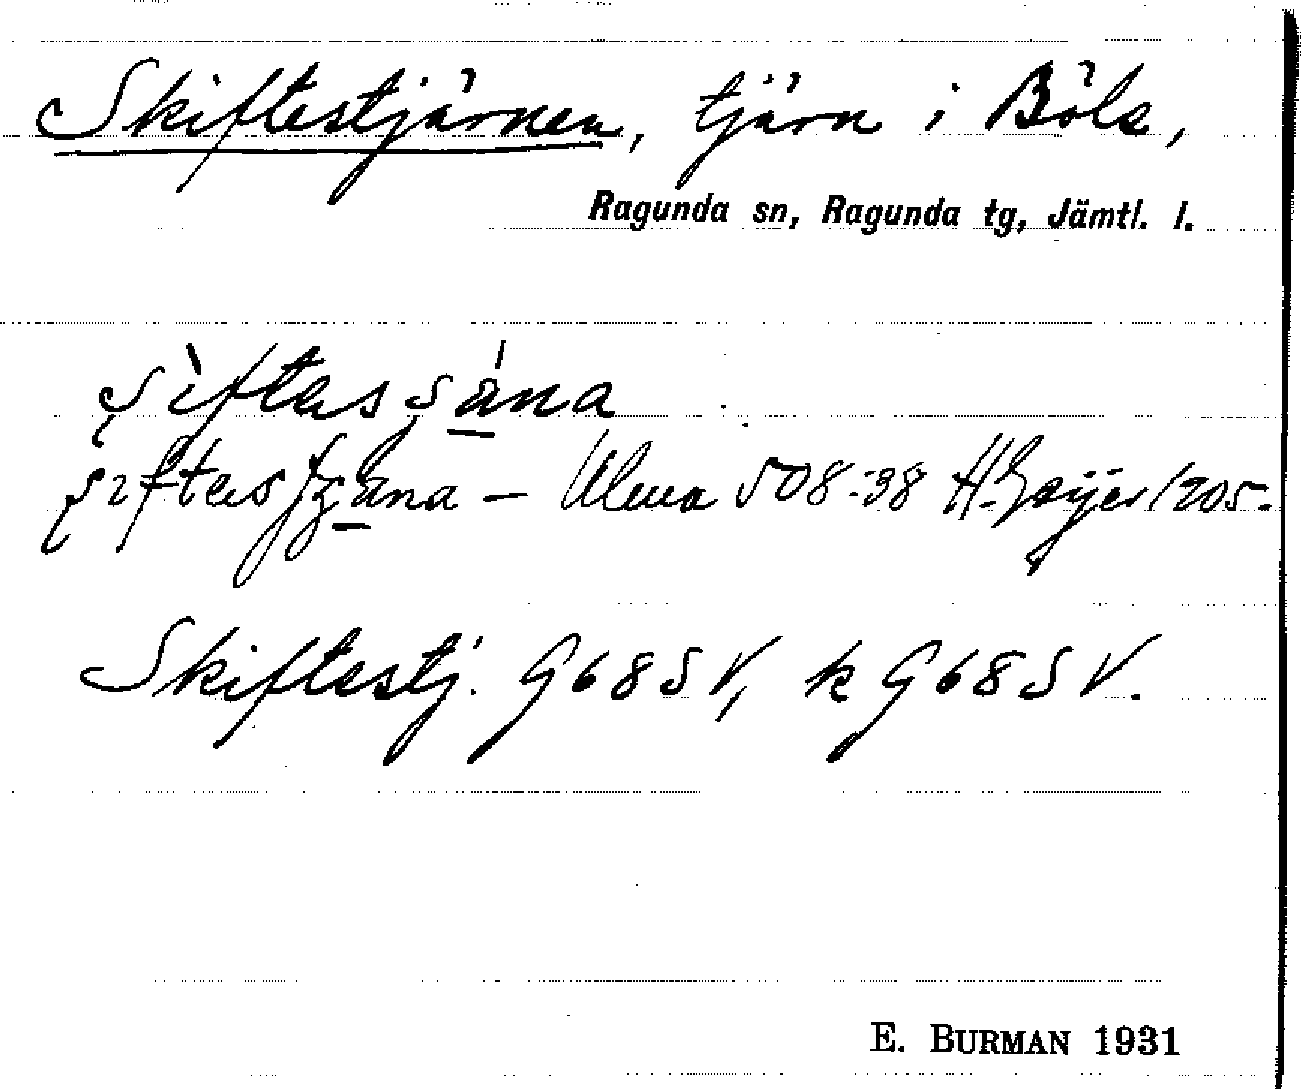 Skiftestjärnen, tjärn i Böle,
Ragunda sn, Ragunda tg, Jämtl. l.
Ulma 508:38 H. Geijer 1205.
Skiftestj. G68SV, k G68SV.
E. BURMAN 1931